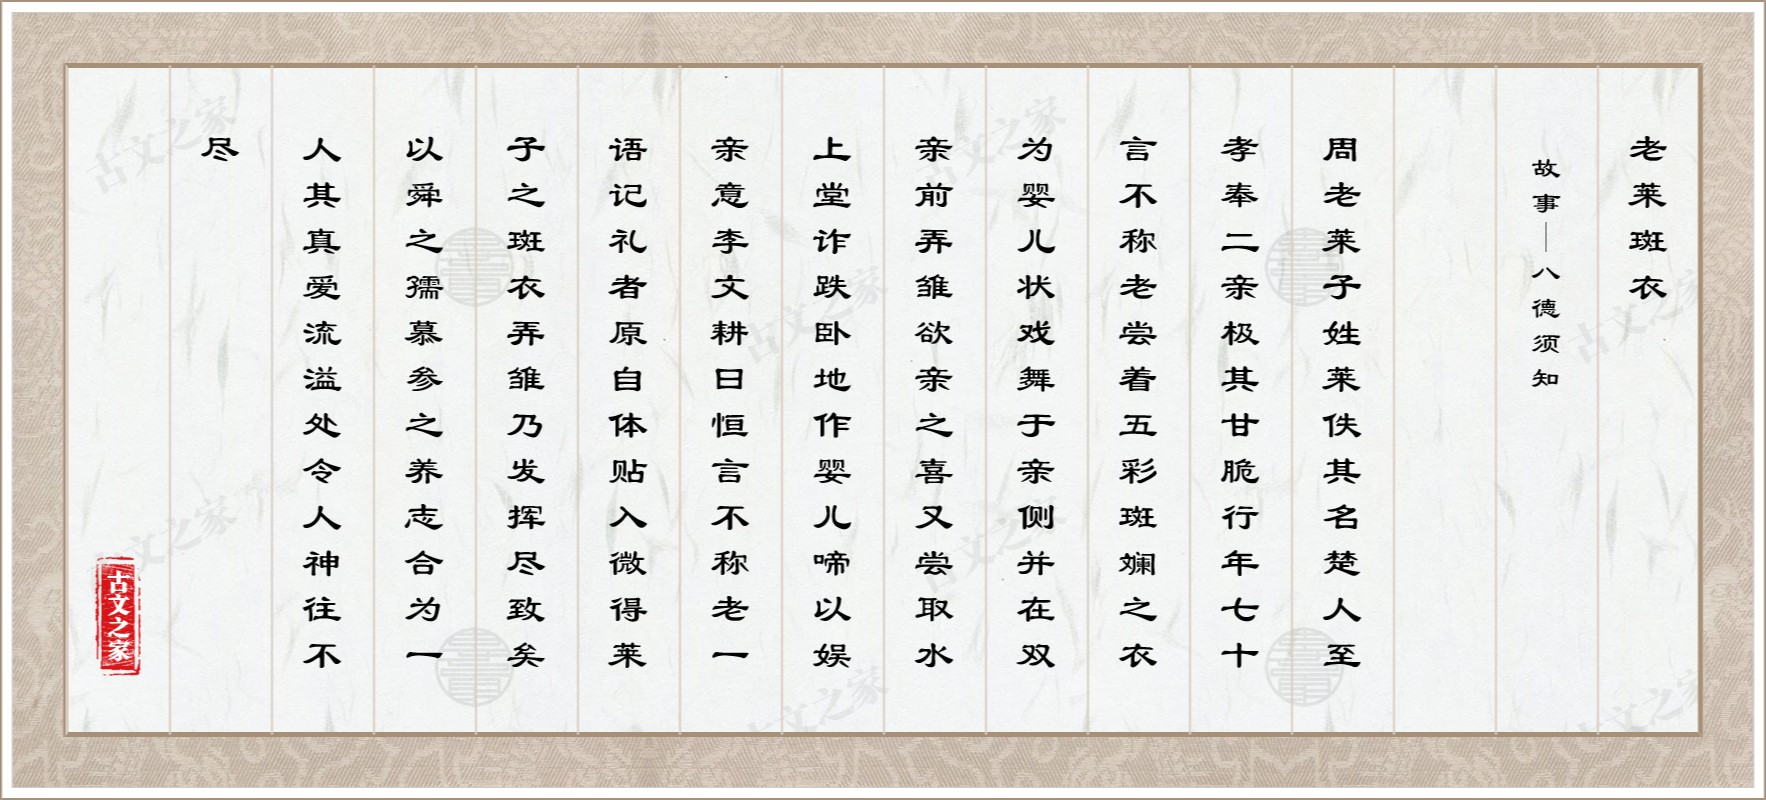 老莱斑衣
故事—八德须知
周老莱子姓莱佚其名楚人至
孝奉二亲极其甘脆行年七十
言不称老尝着五彩斑斓之衣
为婴儿状戏舞于亲侧并在双
亲前弄雏欲亲之喜又尝取水
上堂诈跌卧地作婴儿啼以娱
亲意李文耕曰恒言不称老一
语记礼者原自体贴入微得莱
子之斑衣弄雏乃发挥尽致矣
以舜之孺慕参之养志合为一
人其真爱流溢处令人神往不
尽
古文之家